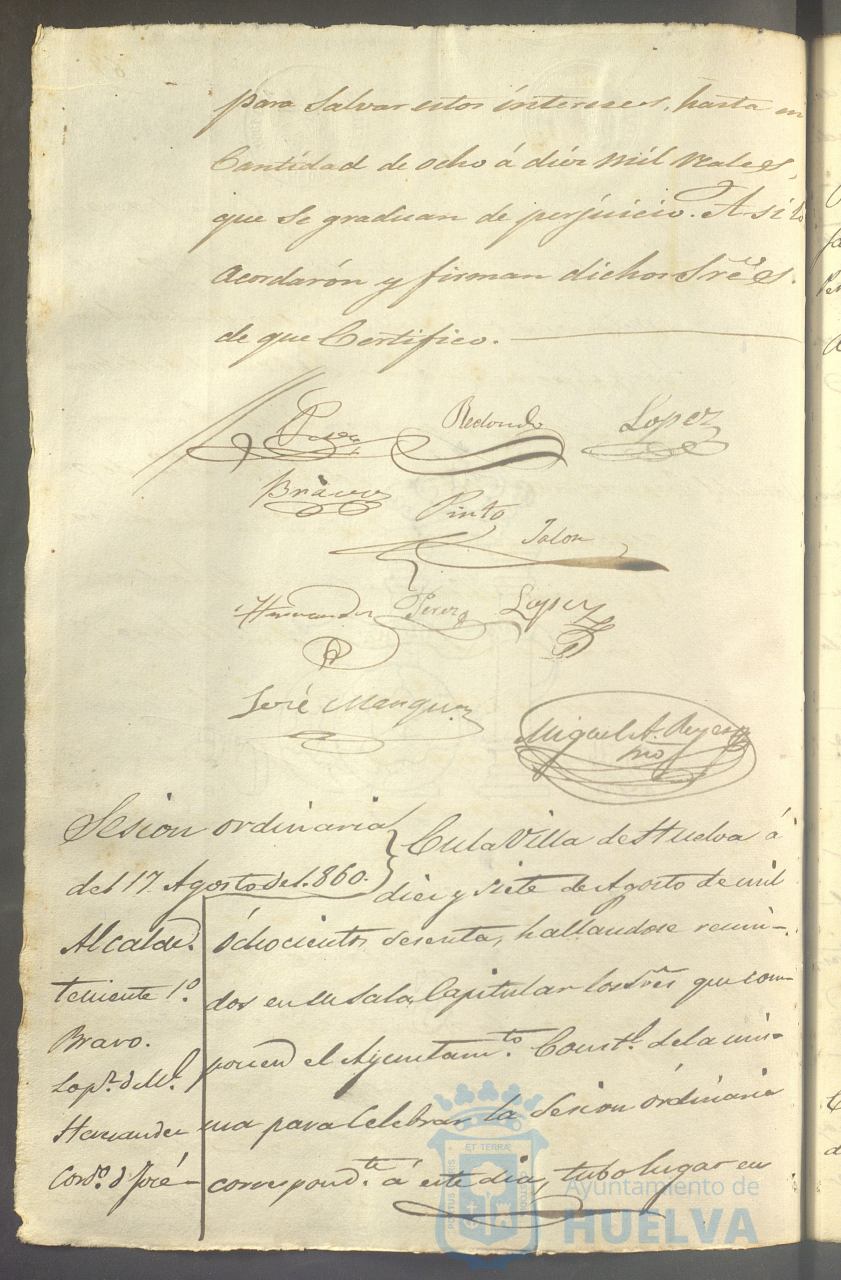 para salvar estos intereses, hasta en
Cantidad de ocho á diez mil reales,
que se graduan de perjuicio. Asi lo
acordarón y firman dichos Sres.
de que Certifico.
Redondo Lopez
Bravo Pinto Jalon
Hernandez Perez Lopez
José Marquez
Miguel A. Reyes
Srio
Sesion ordinaria
del 17 Agosto del 1860.
Alcalde.
Teniente 1º.
Bravo.
Lopz. d Ml.
Hernandez
Cordo. d José
En la Villa de Huelva á
diez y siete de Agosto de mil
óchocientos sesenta, hallandose reuni-
dos en su Sala Capitular los Sres que com-
ponen el Ayuntamto. Constl. de la mis-
ma para Celebrar la Sesion órdinaria
correspondte. á este dia, tubo lugar en
ET TERRA
Ayuntamiento de
HUELVA